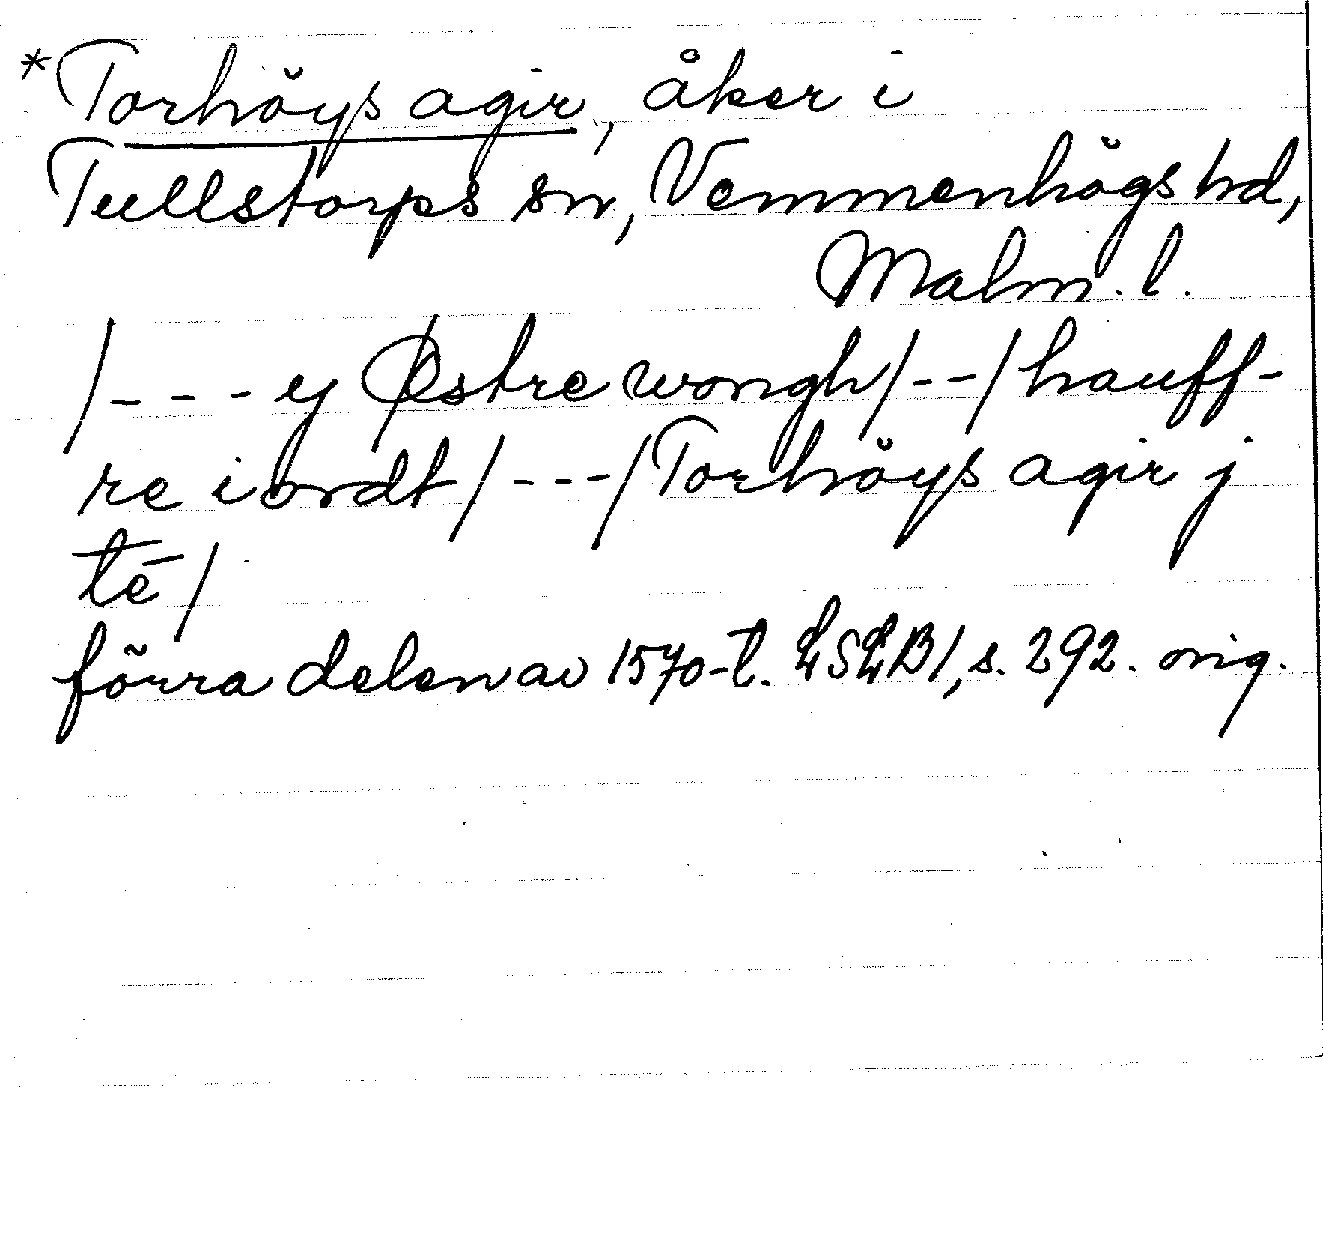 *Torhöys agir, åker i
Tullstorps sn, Vemmenhögs hd,
Malm. l.
/- - - ej Østre wongh/- -/ hauff-
re iordt/- - -/Torhöys agir j
té/
förra delen av 1570-t. LSLB 1, s. 292. orig.